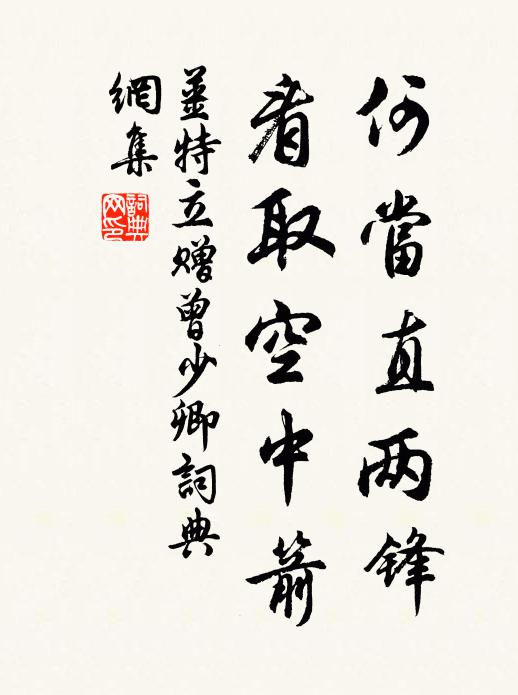 何當直两锋
看取空中箭
姜特立贈曾少卿詞典
網集
詞典
网印